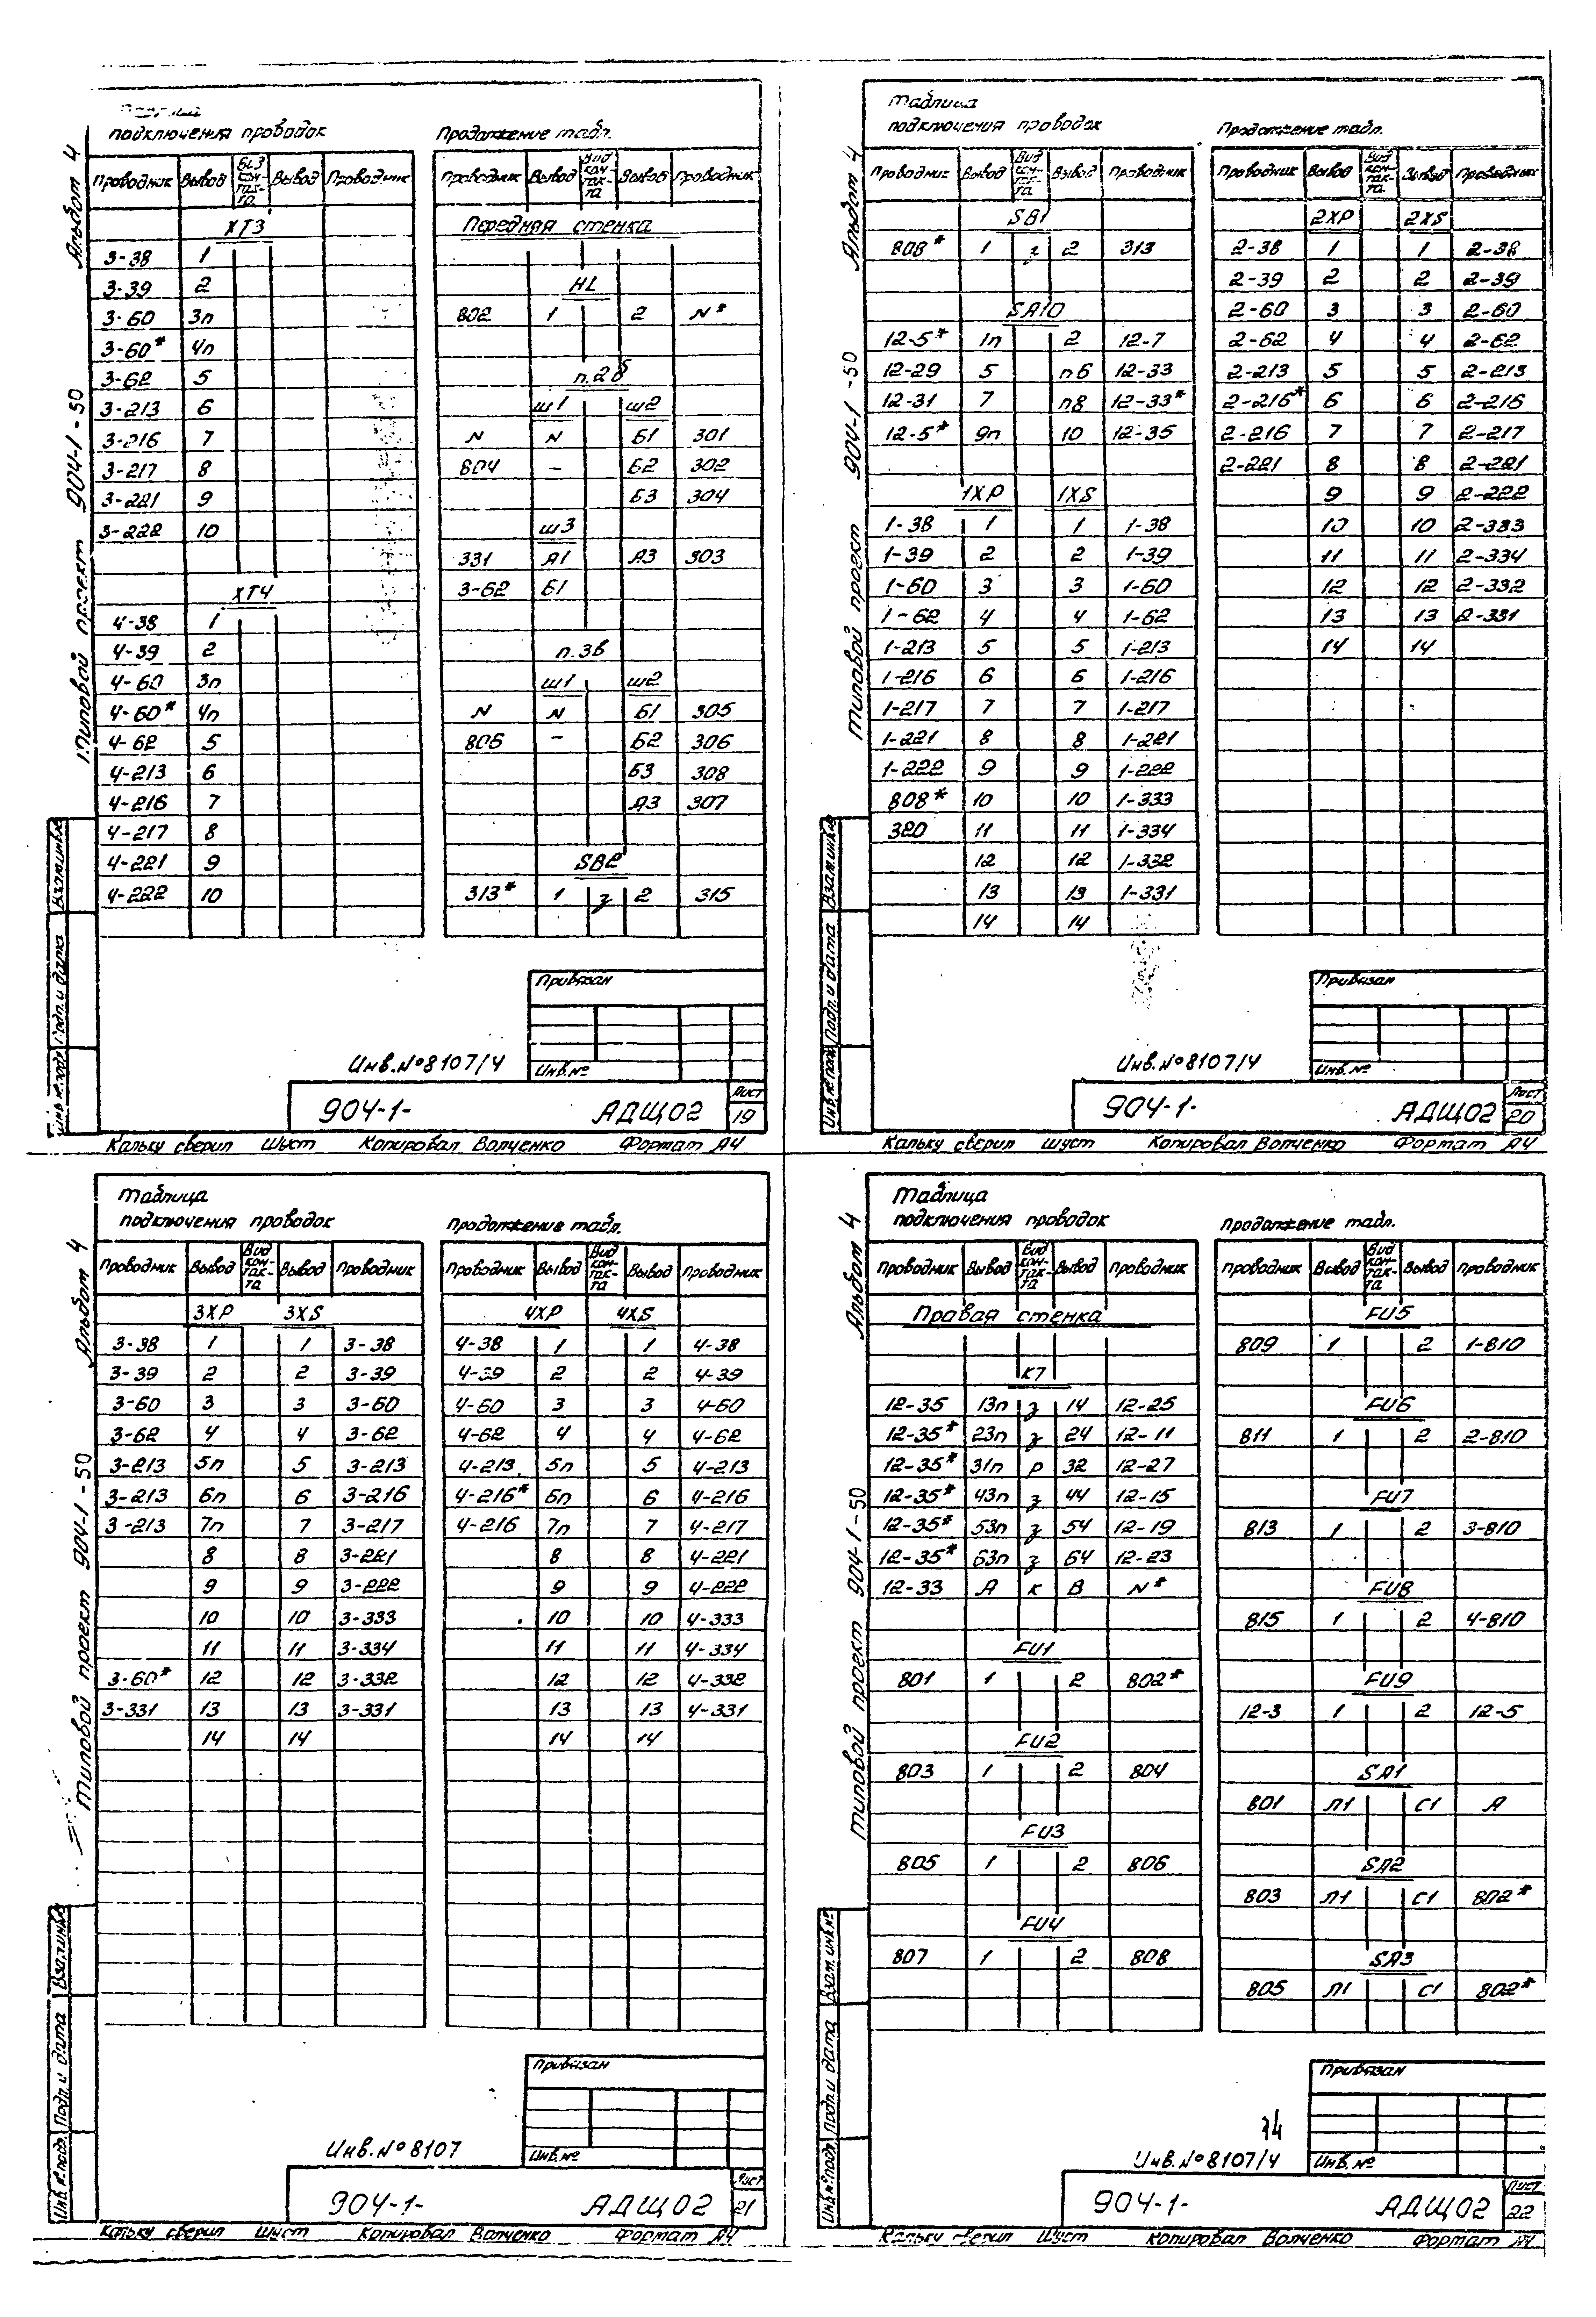 Таблица
подключения проводок
Проводник Вывод Вид контакта Вывод Проводник
XT3
3-38 1
3-39 2
3-60 3п
3-60* 4п
3-62 5
3-213 6
3-216 7
3-217 8
3-221 9
3-222 10
XT4
4-38 1
4-39 2
4-60 3п
4-60* 4п
4-62 5
4-213 6
4-216 7
4-217 8
4-221 9
4-222 10
Продолжение табл.
Проводник Вывод Вид контакта Вывод Проводник
Передняя стенка
HL
802 1 2 N*
п.2б
ш1 ш2
N N Б1 301
804 – Б2 302
Б3 304
ш3
331 А1 А3 303
3-62 Б1
п.3в
ш1 ш2
N N Б1 305
806 – Б2 306
Б3 308
А3 307
SB2
313* 1 з 2 315
Альбом 4
Типовой проект 904-1-50
Взам.инв.№
Подп. и дата
Инв.№ подл.
Привязан
Инв.№
Инв.№8107/4
904-1- АДЩ02
Лист
19
Кальку сверил Шуст Копировал Волченко Формат А4
Таблица
подключения проводок
Проводник Вывод Вид контакта Вывод Проводник
SB1
808* 1 з 2 313
SA10
12-5* 1п 2 12-7
12-29 5 п6 12-33
12-31 7 п8 12-33*
12-5* 9п 10 12-35
1XP 1XS
1-38 1 1 1-38
1-39 2 2 1-39
1-60 3 3 1-60
1-62 4 4 1-62
1-213 5 5 1-213
1-216 6 6 1-216
1-217 7 7 1-217
1-221 8 8 1-221
1-222 9 9 1-222
808* 10 10 1-333
320 11 11 1-334
12 12 1-332
13 13 1-331
14 14
Продолжение табл.
Проводник Вывод Вид контакта Вывод Проводник
2XP 2XS
2-38 1 1 2-38
2-39 2 2 2-39
2-60 3 3 2-60
2-62 4 4 2-62
2-213 5 5 2-213
2-216* 6 6 2-216
2-216 7 7 2-217
2-221 8 8 2-221
9 9 2-222
10 10 2-333
11 11 2-334
12 12 2-332
13 13 2-331
14 14
Альбом 4
Типовой проект 904-1-50
Взам.инв.№
Подп. и дата
Инв.№ подл.
Привязан
Инв.№
Инв.№8107/4
904-1- АДЩ02
Лист
20
Кальку сверил Шуст Копировал Волченко Формат А4
Таблица
подключения проводок
Проводник Вывод Вид контакта Вывод Проводник
3XP 3XS
3-38 1 1 3-38
3-39 2 2 3-39
3-60 3 3 3-60
3-62 4 4 3-62
3-213 5п 5 3-213
3-213 6п 6 3-216
3-213 7п 7 3-217
8 8 3-221
9 9 3-222
10 10 3-333
11 11 3-334
3-60* 12 12 3-332
3-331 13 13 3-331
14 14
Продолжение табл.
Проводник Вывод Вид контакта Вывод Проводник
4XP 4XS
4-38 1 1 4-38
4-39 2 2 4-39
4-60 3 3 4-60
4-62 4 4 4-62
4-213 5п 5 4-213
4-216* 6п 6 4-216
4-216 7п 7 4-217
8 8 4-221
9 9 4-222
10 10 4-333
11 11 4-334
12 12 4-332
13 13 4-331
14 14
Альбом 4
Типовой проект 904-1-50
Взам.инв.№
Подп. и дата
Инв.№ подл.
Привязан
Инв.№
Инв.№8107
904-1- АДЩ02
Лист
21
Кальку сверил Шуст Копировал Волченко Формат А4
Таблица
подключения проводок
Проводник Вывод Вид контакта Вывод Проводник
Правая стенка
К7
12-35 13п з 14 12-25
12-35* 23п з 24 12-11
12-35* 31п р 32 12-27
12-35* 43п з 44 12-15
12-35* 53п з 54 12-19
12-35* 63п з 64 12-23
12-33 А к В N*
FU1
801 1 2 802*
FU2
803 1 2 804
FU3
805 1 2 806
FU4
807 1 2 808
Продолжение табл.
Проводник Вывод Вид контакта Вывод Проводник
FU5
809 1 2 1-810
FU6
811 1 2 2-810
FU7
813 1 2 3-810
FU8
815 1 2 4-810
FU9
12-3 1 2 12-5
SA1
801 Л1 С1 А
SA2
803 Л1 С1 802*
SA3
805 Л1 С1 802*
Альбом 4
Типовой проект 904-1-50
Взам.инв.№
Подп. и дата
Инв.№ подл.
Привязан
Инв.№
Инв.№8107/4
904-1- АДЩ02
Лист
22
Кальку сверил Шуст Копировал Волченко Формат А4